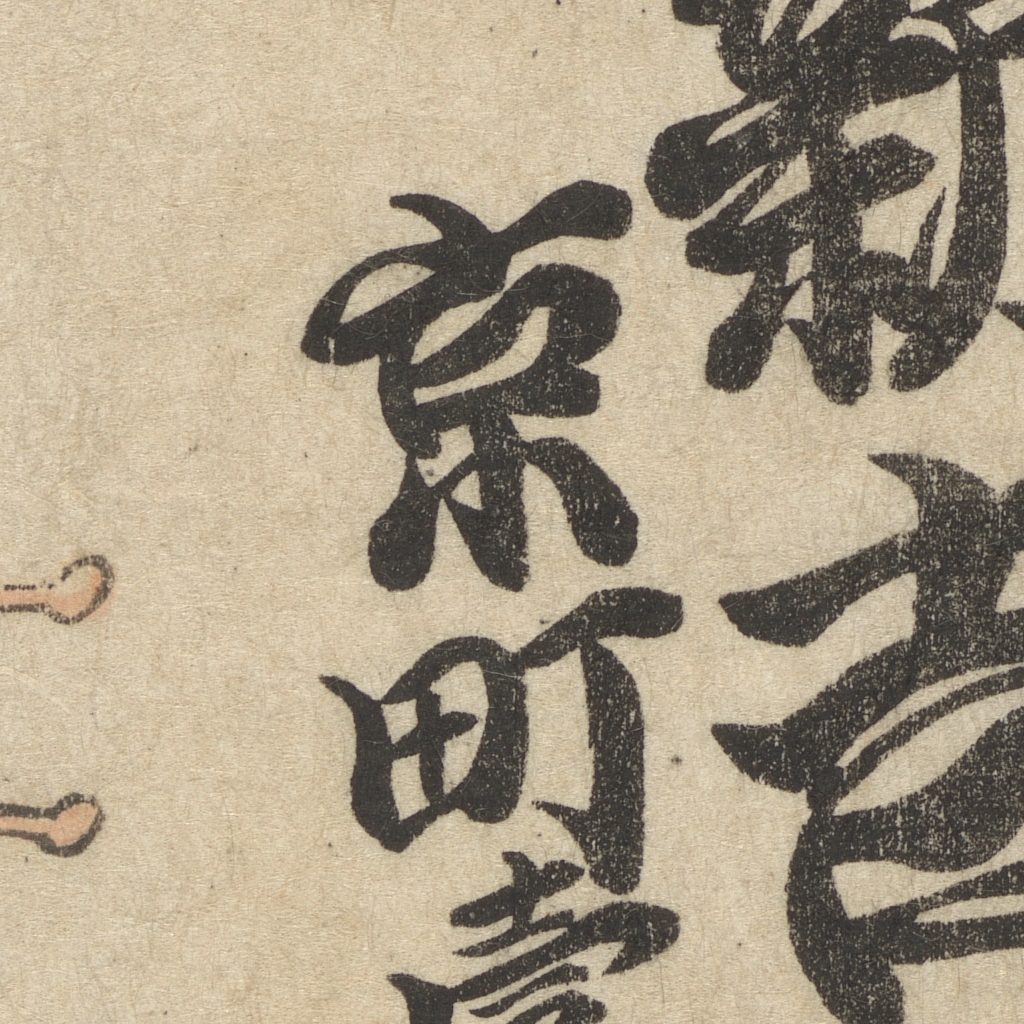 新吉
京町